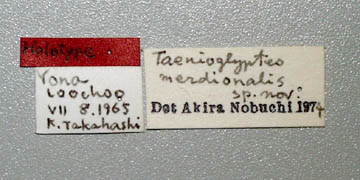 Holotype
Yona
Loochoo
VII 8.1965
K. Takahashi
Taenioglyptes
merdionalis
sp. nov.
Det Akira Nobuchi 1974